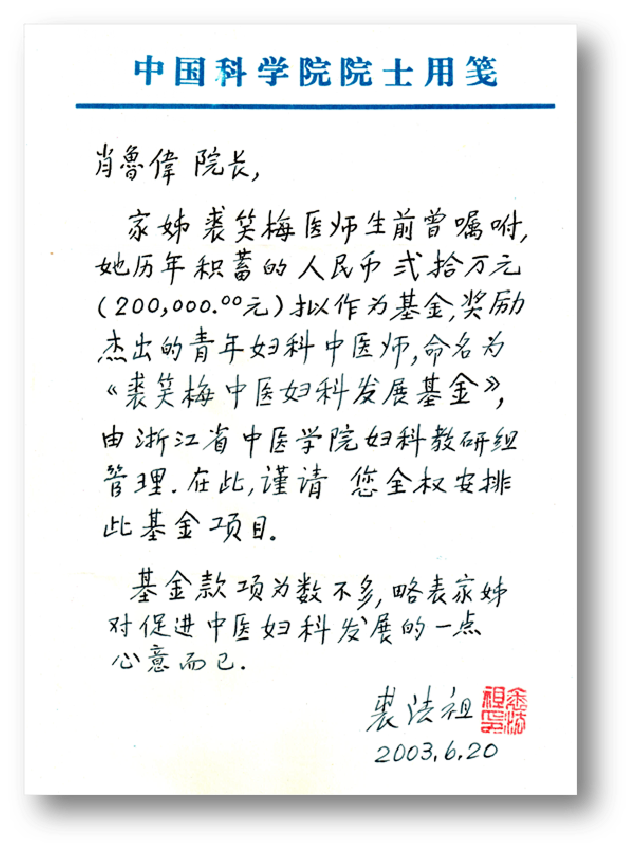 中国科学院院士用笺
肖魯偉 院长,
家姊裘笑梅医师生前曾嘱咐,
她历年积蓄的人民币 弍拾万元
(200,000.00元) 拟作为基金,奖励
杰出的青年妇科中医师,命名为
《裘笑梅中医妇科发展基金》,
由浙江省中医学院妇科教研组
管理.在此,谨请 您全权安排
此基金项目。
基金款项为数不多,略表家姊
对促进中医妇科发展的一点
心意而已.
裘法祖
2003.6.20